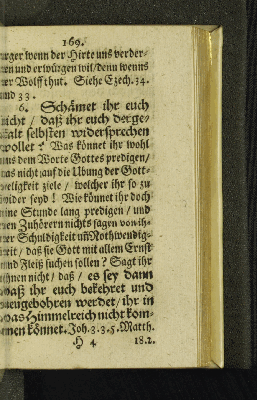 169.
ärger wenn der Hirte uns verder-
ben und erwürgen wil/denn wenns
der Wolff thut. Siehe Ezech. 34.
und 33.
6. Schämet ihr euch
nicht / daß ihr euch derge-
stalt selbsten widersprechen
wollet? Was könnet ihr wohl
aus dem Worte Gottes predigen/
das nicht auf die Ubung der Gott-
seligkeit ziele / welcher ihr so zu
wider seyd! Wie könnet ihr doch
eine Stunde lang predigen / und
den Zuhörern nichts sagen von ih-
rer Schuldigkeit uñ Nothwendig-
keit / daß sie Gott mit allem Ernst
und Fleiß suchen sollen? Sagt ihr
ihnen nicht / daß / es sey dann
daß ihr euch bekehret und
neugebohren werdet / ihr in
das Himmelreich nicht kom-
men könnet. Joh. 3. 3. 5. Matth.
H 4 18.2.